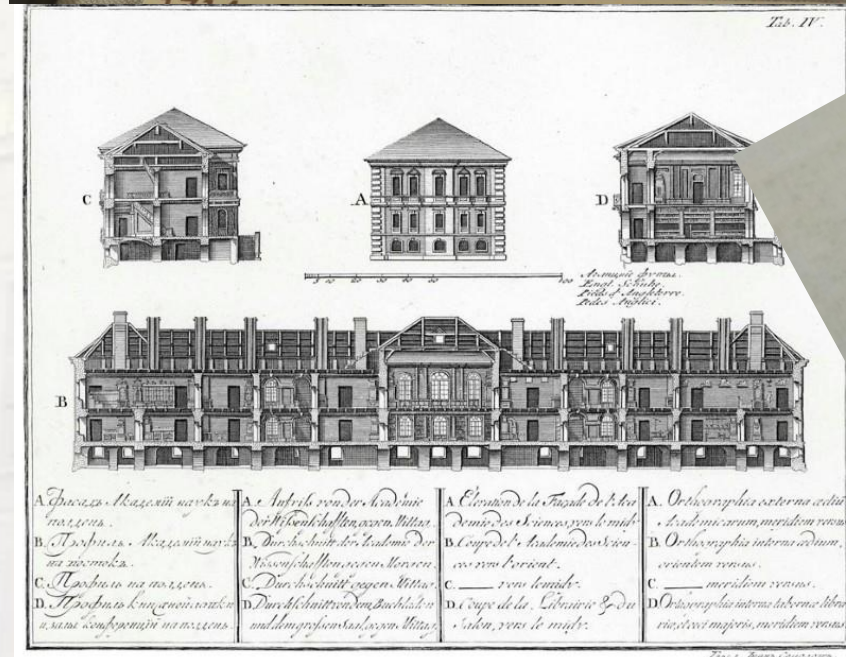 Tab. IV.
C
A
D
5 10 20 30 40 50 100
Engl. Schuhe.
Pieds d'Angleterre.
Pedes Anglici.
B
A. Фасадъ Академіи наукъ на
полдень.
B. Профиль Академіи наукъ
на востокъ.
C. Профиль на полдень.
D. Профиль книжной лавки
и залы конференціи на полдень.
A. Aufriss von der Academie
der Wissenschafften gegen Mittag.
B. Durchschnitt der Academie der
Wissenschafften gegen Morgen.
C. Durchschnitt gegen Mittag.
D. Durchschnitt von dem Buchladen
und dem grossen Saal gegen Mittag.
A. Elevation de la Façade de l'Aca
demie des Sciences, vers le midy.
B. Coupe de l'Academie des Scien-
ces vers l'orient.
C. ___ vers le midy.
D. Coupe de la Librairie & du
Salon, vers le midy.
A. Orthographia externa ædium
Academicarum, meridiem versus.
B. Orthographia interna ædium,
orientem versus.
C. ___ meridiem versus.
D. Orthographia interna tabernæ libra
riæ, et oeci majoris, meridiem versus.